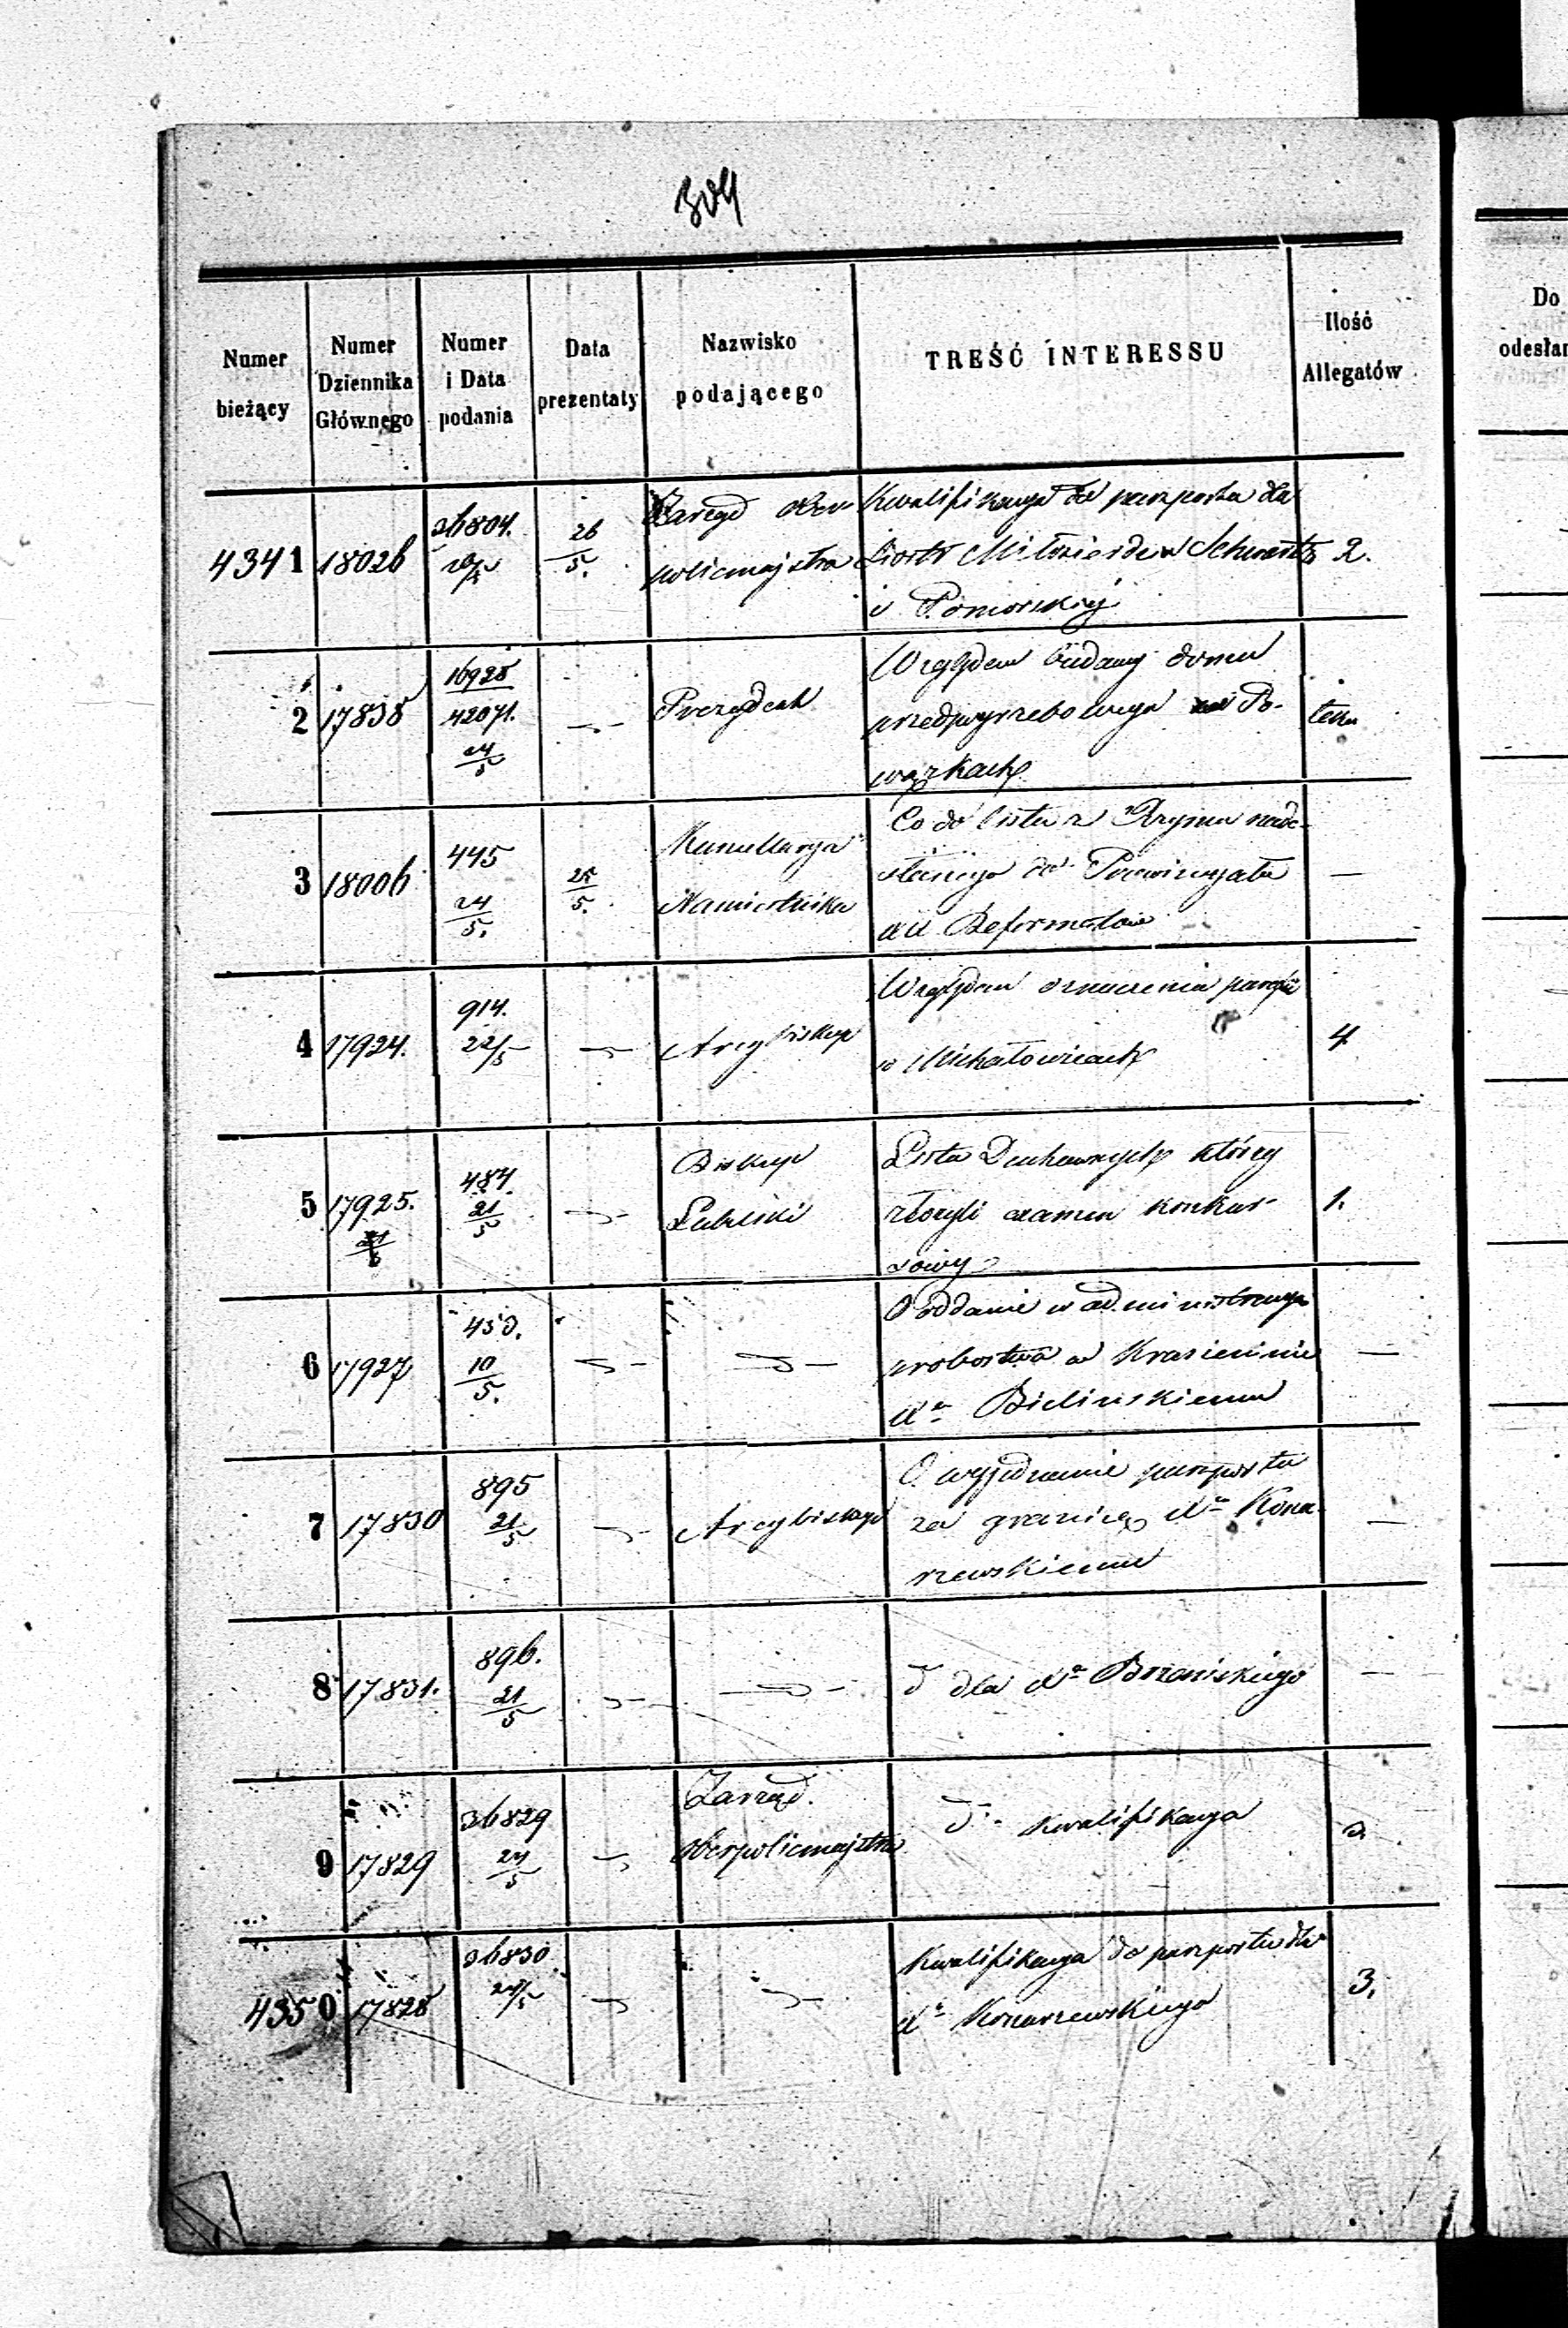 304
Numer bieżący
Numer Dziennika Głównego
Numer i Data podania
Data prezentaty
Nazwisko podającego
TREŚĆ INTERESSU
Ilość Allegatów
Do
odesłan
4341 18026 36804. 26/5. Zarząd ober Kwalifikacya do paszportu dla
policmajstra Siostr Miłosierdzia Schwartz 2.
i Pomorskiej
2 17838 16928 / 42071. 24/5 Prezydent Względem budowy domu
przedpogrzebowego na Po-
wązkach teka
3 18006 445 24/5. 25/5. Kancellarya Co do listu z Rzymu nade-
Namiestnika słanego do Prowincyała
XX Reformatów —
4 17924. 914. 22/5 Arcybiskup Względem oznaczenia parafii
w Michałowicach 4
5 17925. 487. 21/5 Biskup Lista Duchownych którzy
Lubelski złożyli examen konkur- 1.
sowy
6 17927 453. 10/5. O oddanie w administracyą
probostwa w Krasieninie —
Xu Bielinskiemu
7 17830 895 21/5 Arcybiskup O wyjednanie paszportu
za granicę Xu Kona- —
rzewskiemu
8 17831. 896. 21/5 d dla Xa Brzezińskiego —
9 17829 36829 24/5 Zarząd
Oberpolicmajstra d. kwalifikacya 3.
4350 17828 36830 24/5 Kwalifikacya do paszportu dla
Xa Konarzewskiego 3.